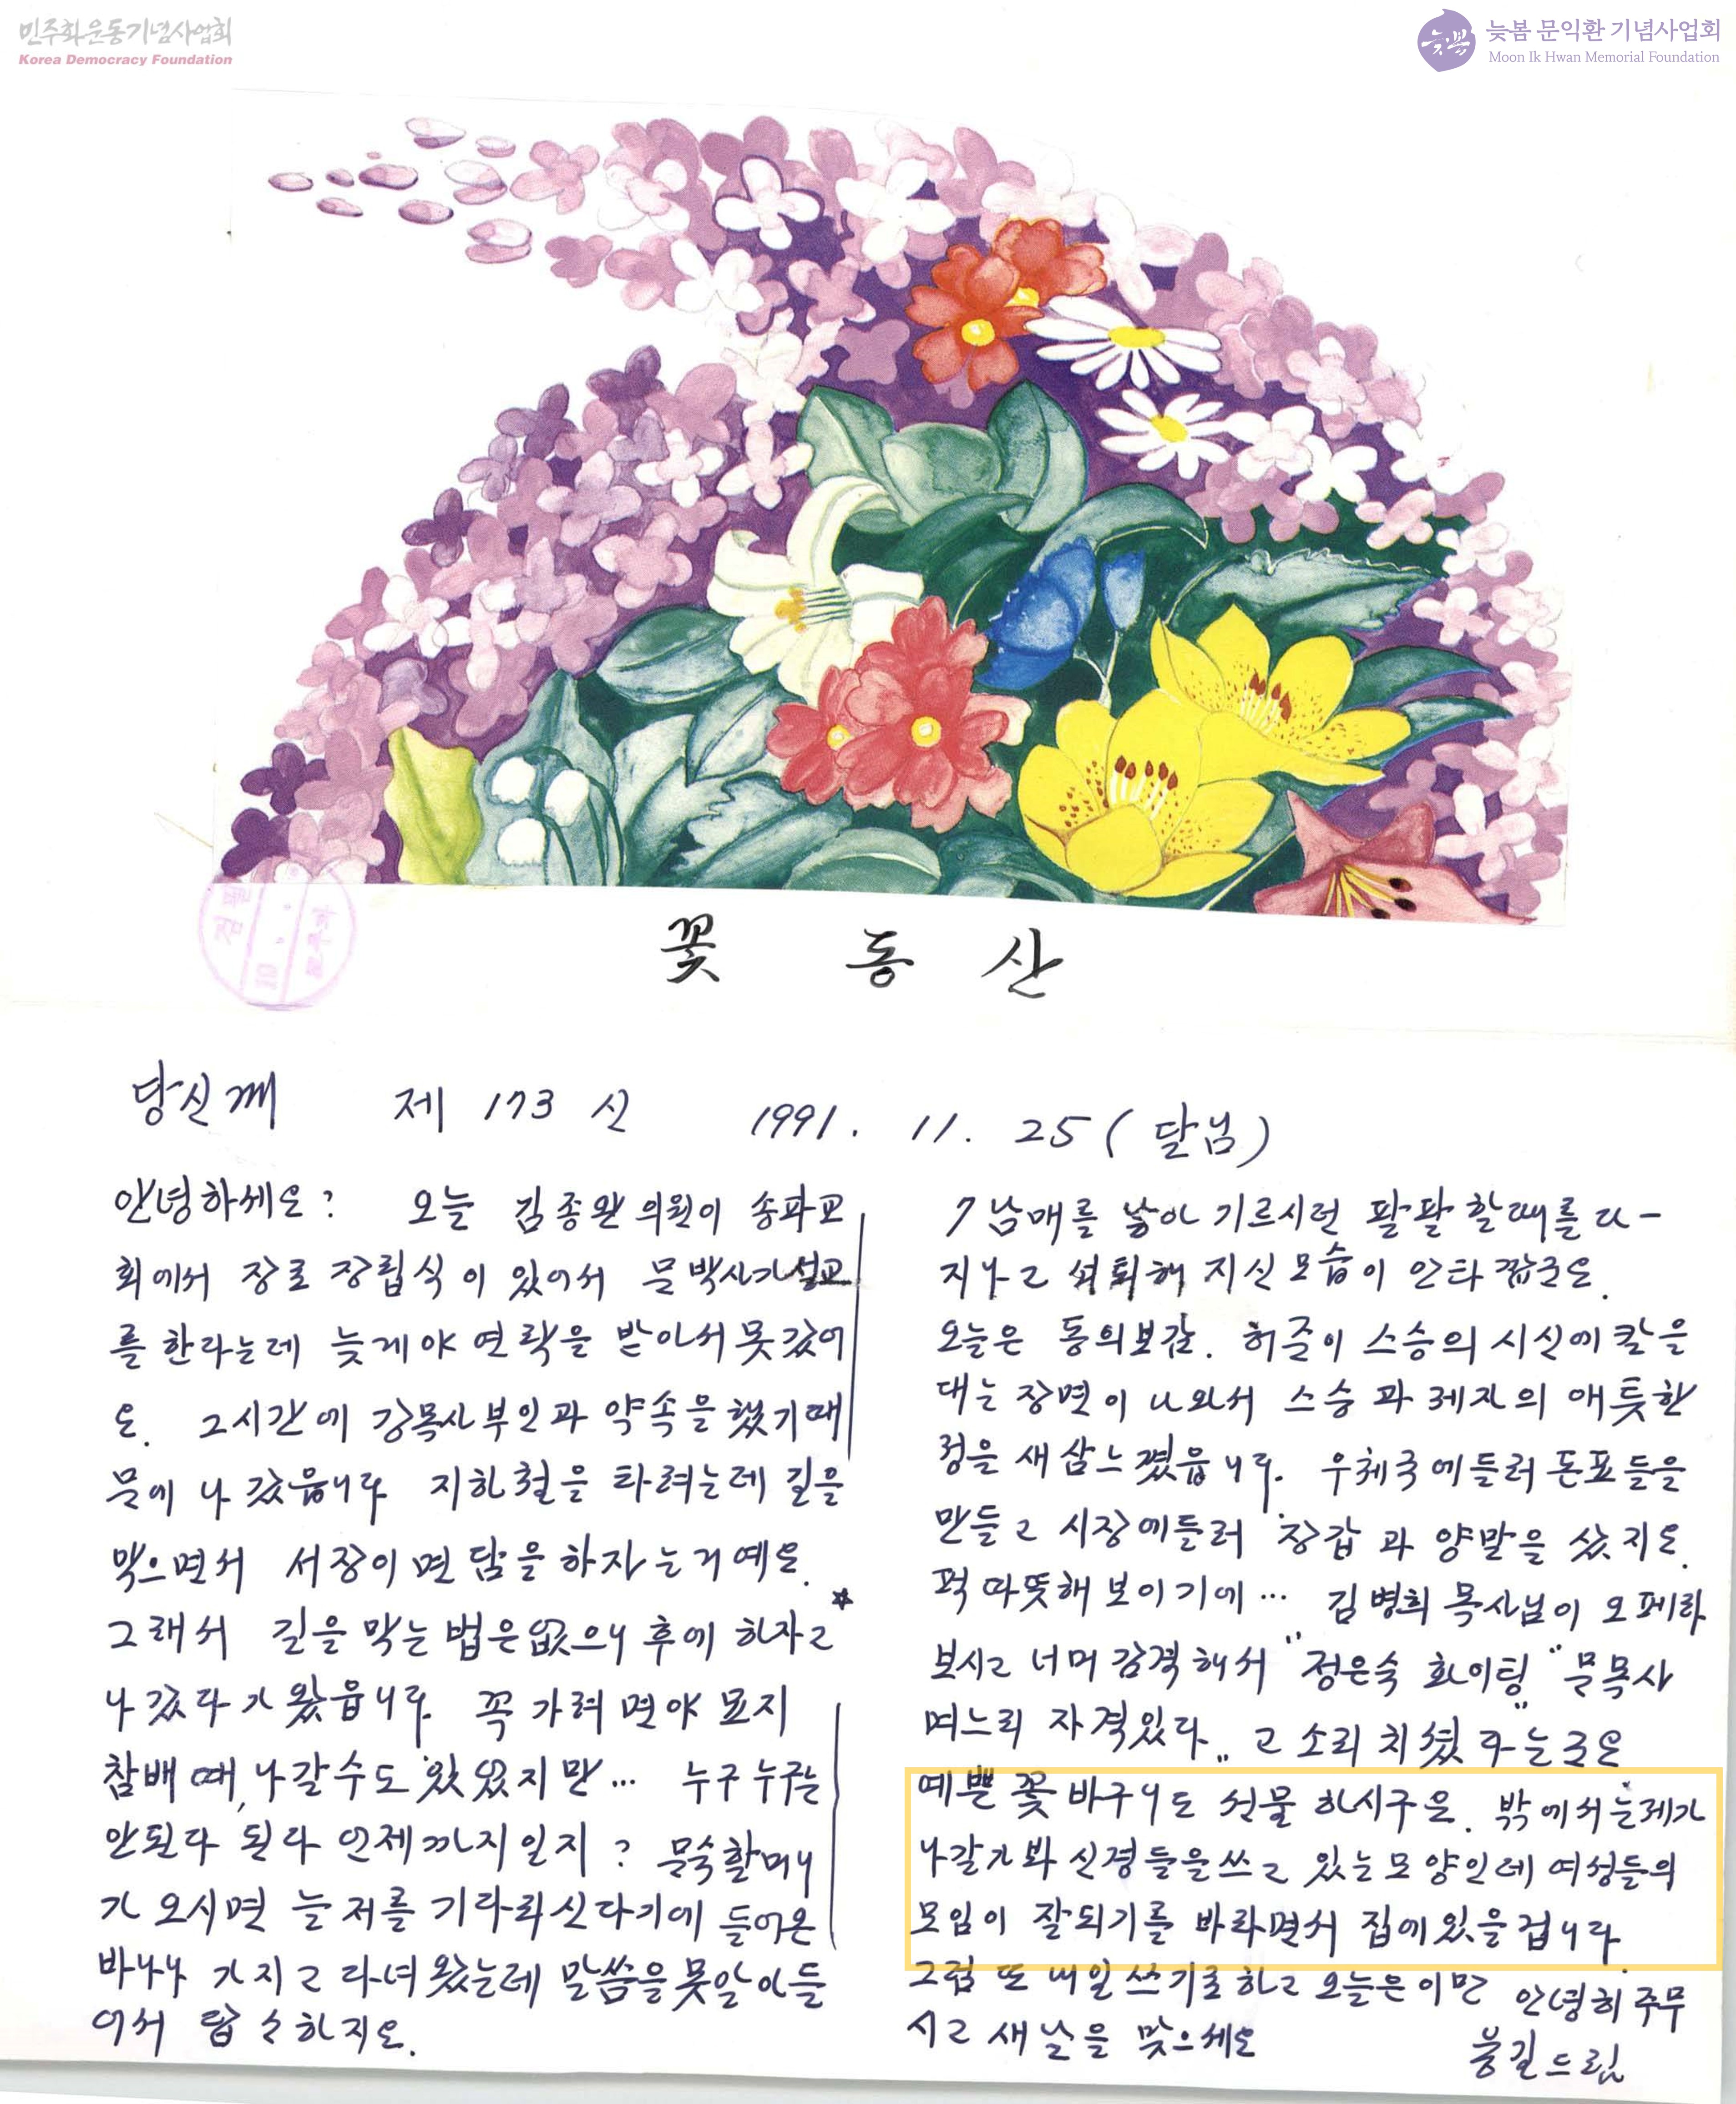 민주화운동기념사업회
Korea Democracy Foundation
늦봄
늦봄 문익환 기념사업회
Moon Ik Hwan Memorial Foundation
꽃 동 산
당신께 제 173 신 1991. 11. 25 (달님)
안녕하세요? 오늘 김종완 의원이 송파교
회에서 장로 장립식이 있어서 문박사가 설교
를 한다는데 늦게야 연락을 받아서 못갔어
요. 2시간에 강목사부인과 약속을 했기때
문에 나갔읍니다. 지하철을 타려는데 길을
막으면서 서장이 면담을 하자는거예요.
그래서 길을 막는 법은 없으니 후에 하자고
나갔다가 왔읍니다. 꼭 가려면야 묘지
참배 때, 나갈수도 있었지만... 누구누구는
안된다 된다 언제까지일지? 문숙할머니
가 오시면 늘 저를 기다리신다기에 들어온
바나나 가지고 다녀왔는데 말씀을 못알아들
어서 답답하지요.
7남매를 낳아 기르시던 팔팔할때를 다-
지나고 쇠퇴해지신 모습이 안타깝군요.
오늘은 동의보감. 허준이 스승의 시신에 칼을
대는 장면이 나와서 스승과 제자의 애틋한
정을 새삼 느꼈읍니다. 우체국에들러 돈표들을
만들고 시장에들러 장갑과 양말을 샀지요.
퍽 따뜻해 보이기에... 김병희 목사님이 오페라
보시고 너머 감격해서 "정은숙 화이팅" "문목사
며느리 자격있다" 고 소리치셨다는군요
예쁜 꽃바구니도 선물하시구요. 밖에서는 제가
나갈가봐 신경들을쓰고 있는모양인데 여성들의
모임이 잘되기를 바라면서 집에있을겁니다.
그럼 또 내일 쓰기로 하고 오늘은 이만 안녕히 주무
시고 새날을 맞으세요
봉길드림